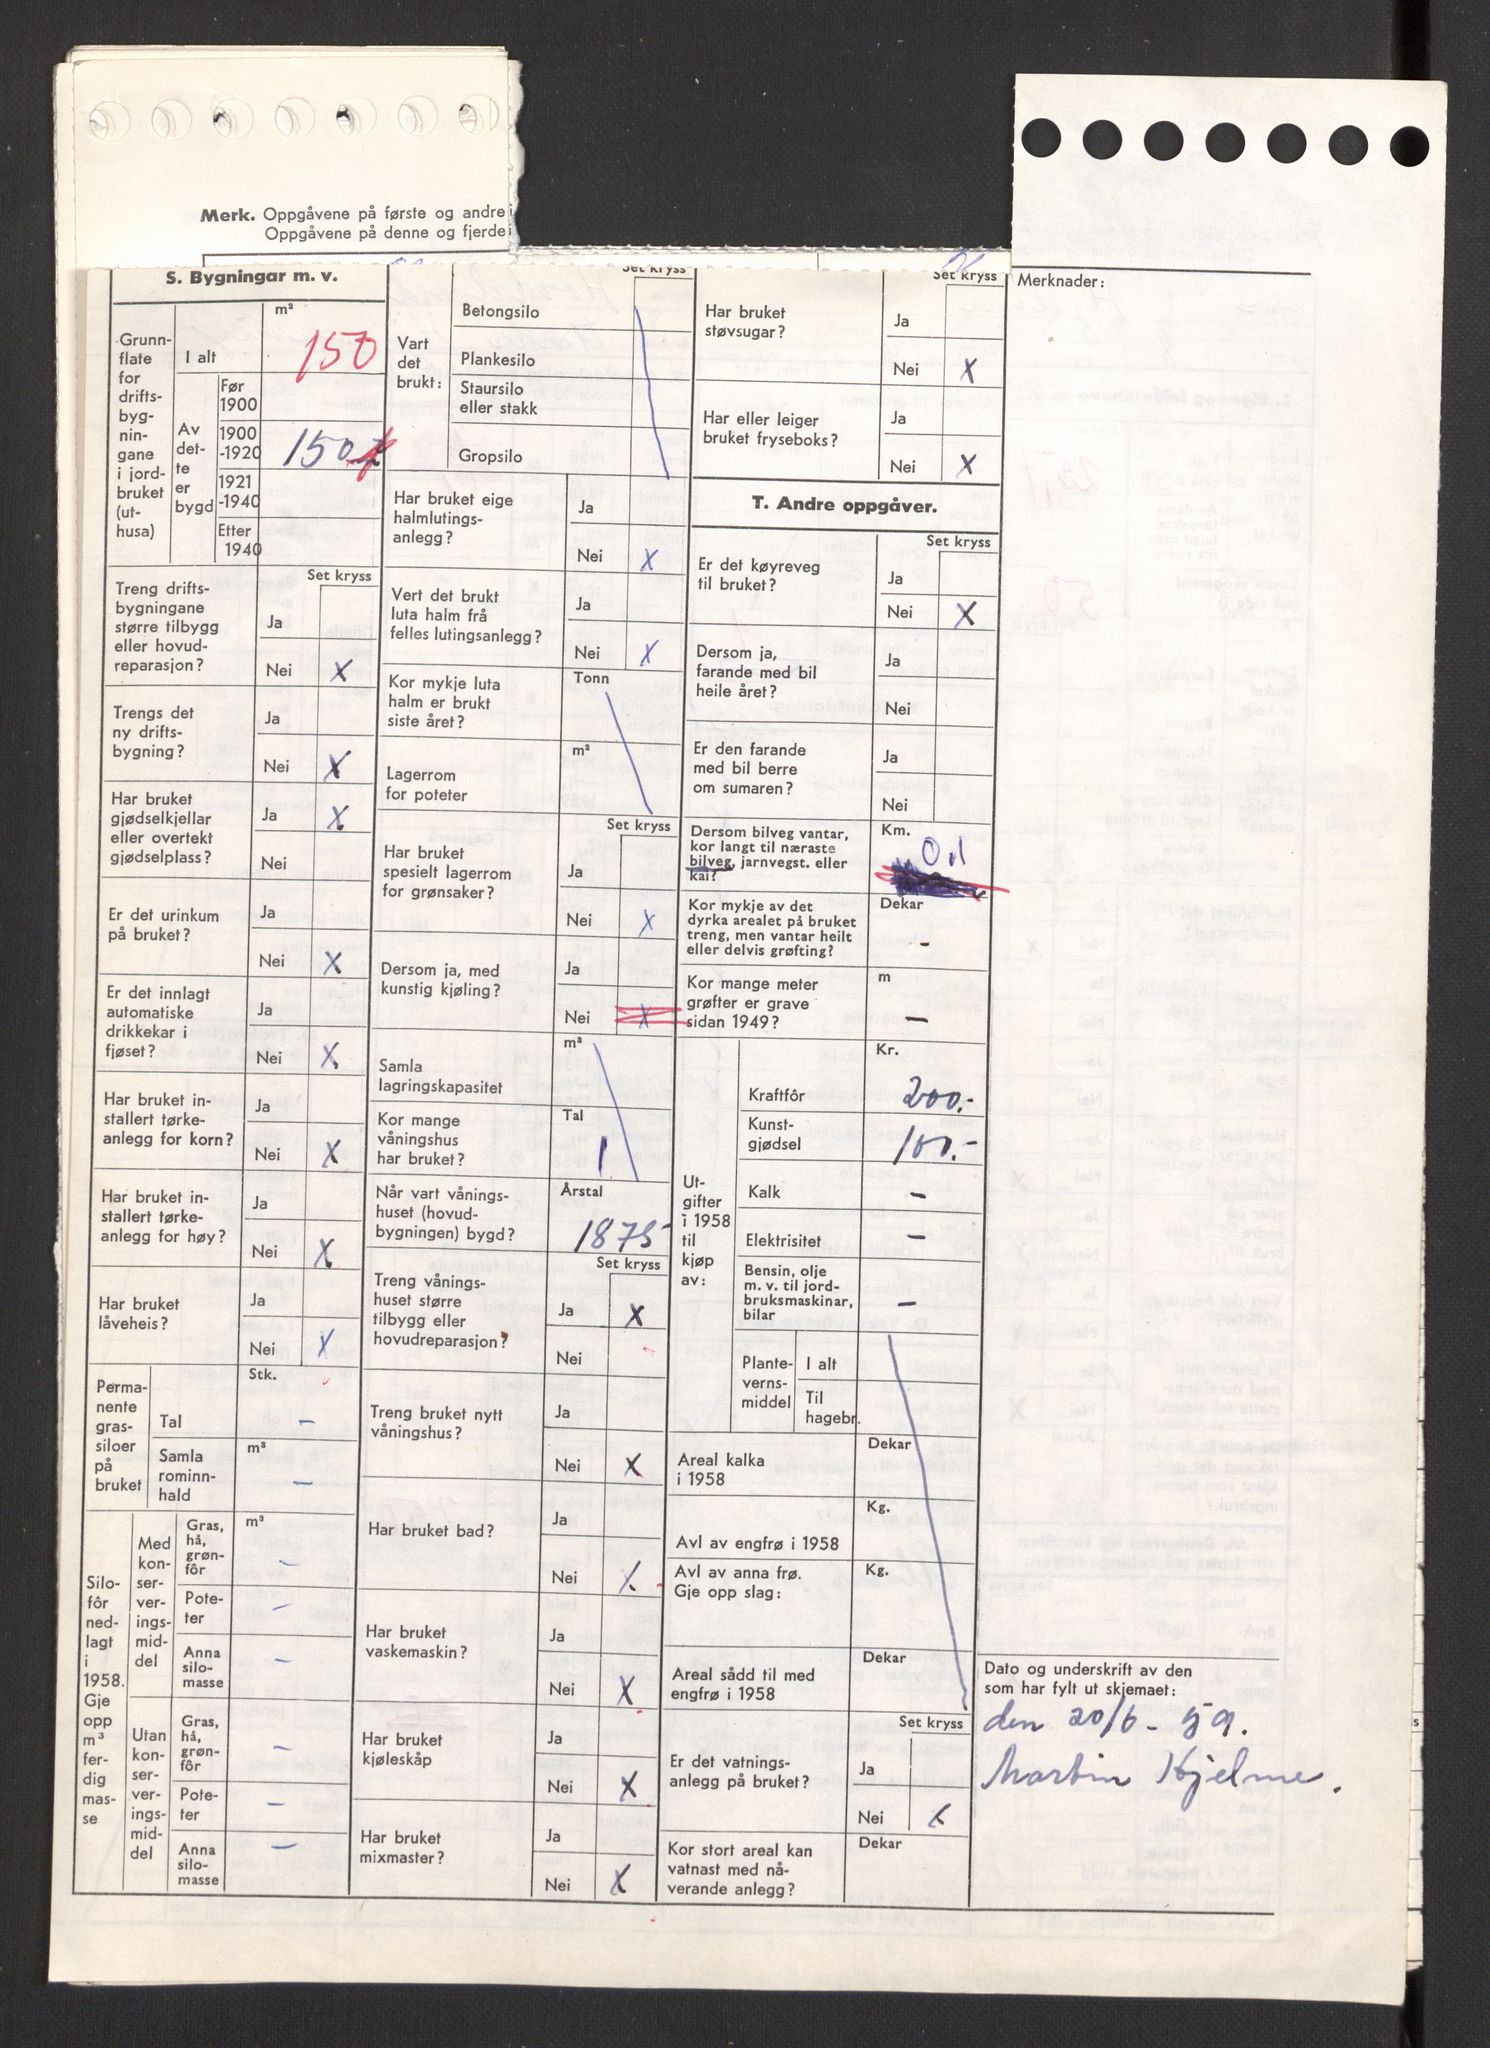 Merk. Oppgåvene på første og andre
Oppgåvene på denne og fjerde
S. Bygningar m. v.
Grunn-
flate
for
drifts-
byg-
nin-
gane
i jord-
bruket
(ut-
husa)
m²
I alt
150
Av
det-
te
er
bygd
Før
1900
1900
-1920
150
1921
-1940
Etter
1940
Set kryss
Treng drifts-
bygningane
større tilbygg
eller hovud-
reparasjon?
Ja
Nei X
Trengs det
ny drifts-
bygning?
Ja
Nei X
Har bruket
gjødselkjellar
eller overtekt
gjødselplass?
Ja X
Nei
Er det urinkum
på bruket?
Ja
Nei X
Er det innlagt
automatiske
drikkekar i
fjøset?
Ja
Nei X
Har bruket in-
stallert tørke-
anlegg for korn?
Ja
Nei X
Har bruket in-
stallert tørke-
anlegg for høy?
Ja
Nei X
Har bruket
låveheis?
Ja
Nei X
Perma-
nente
gras-
siloer
på
bruket
Stk.
Tal –
m³
Samla
rominn-
hald –
Silo-
fôr
ned-
lagt
i
1958.
Gje
opp
m³
fer-
dig
mas-
se
Med
kon-
ser-
ver-
ings-
mid-
del
m³
Gras,
hå,
grøn-
fôr –
Pote-
ter –
Anna
silo-
masse –
Utan
kon-
ser-
ver-
ings-
mid-
del
Gras,
hå,
grøn-
fôr –
Pote-
ter –
Anna
silo-
masse –
Set kryss
Vart
det
brukt:
Betongsilo
Plankesilo
Staursilo
eller stakk
Gropsilo
Har bruket eige
halmlutings-
anlegg?
Ja
Nei X
Vert det brukt
luta halm frå
felles lutingsanlegg?
Ja
Nei X
Kor mykje luta
halm er brukt
siste året?
Tonn
Lagerrom
for poteter
m²
Set kryss
Har bruket
spesielt lagerrom
for grønsaker?
Ja
Nei X
Dersom ja, med
kunstig kjøling?
Ja
Nei X
Samla
lagringskapasitet
m³
Kor mange
våningshus
har bruket?
Tal
1
Når vart vånings-
huset (hovud-
bygningen) bygd?
Årstal
1875
Set kryss
Treng vånings-
huset større
tilbygg eller
hovudreparasjon?
Ja X
Nei
Treng bruket nytt
våningshus?
Ja
Nei X
Har bruket bad?
Ja
Nei X
Har bruket
vaskemaskin?
Ja
Nei X
Har bruket
kjøleskåp
Ja
Nei X
Har bruket
mixmaster?
Ja
Nei X
Set kryss
Har bruket
støvsugar?
Ja
Nei X
Har eller leiger
bruket fryseboks?
Ja
Nei X
T. Andre oppgåver.
Set kryss
Er det køyreveg
til bruket?
Ja
Nei X
Dersom ja,
farande med bil
heile året?
Ja
Nei
Er den farande
med bil berre
om sumaren?
Ja
Nei
Dersom bilveg vantar,
kor langt til næraste
bilveg, jarnvegst. eller
kai?
Km.
0,1
Kor mykje av det
dyrka arealet på bruket
treng, men vantar heilt
eller delvis grøfting?
Dekar
–
Kor mange meter
grøfter er grave
sidan 1949?
m
–
Ut-
gifter
i 1958
til
kjøp
av:
Kr.
Kraftfôr 200.-
Kunst-
gjødsel 100.-
Kalk –
Elektrisitet –
Bensin, olje
m. v. til jord-
bruksmaskinar,
bilar –
Plante-
verns-
middel
I alt
Til
hagebr.
Areal kalka
i 1958
Dekar
Avl av engfrø i 1958
Kg.
Avl av anna frø.
Gje opp slag:
Kg.
Areal sådd til med
engfrø i 1958
Dekar
Set kryss
Er det vatnings-
anlegg på bruket?
Ja
Nei X
Kor stort areal kan
vatnast med nå-
verande anlegg?
Dekar
Merknader:
Dato og underskrift av den
som har fylt ut skjemaet:
den 20/6 - 59.
Martin Hjelme.